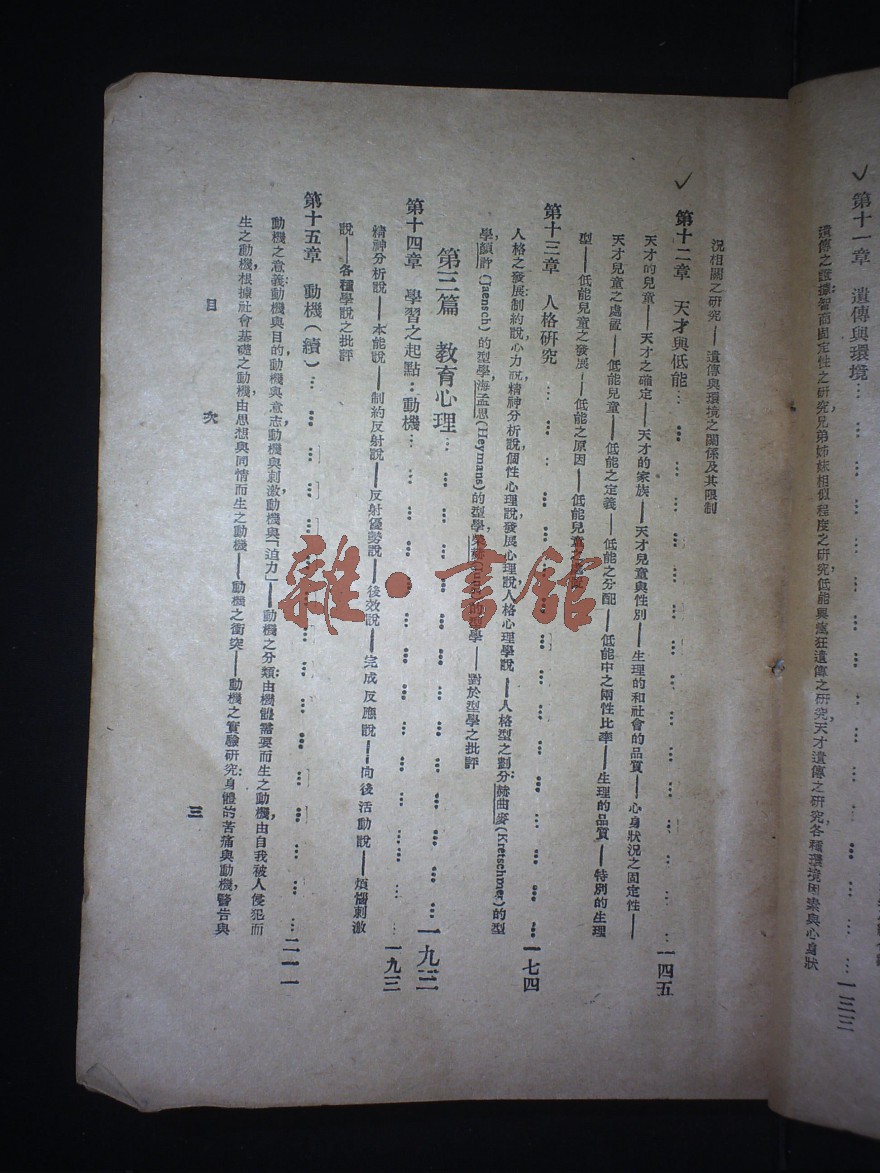 第十一章　遺傳與環境……一三三
遺傳之證據智商固定性之研究,兄弟姊妹相似程度之研究,低能與瘋狂遺傳之研究,天才遺傳之研究,各種環境因素與心身狀
況相關之研究——遺傳與環境之關係及其限制
第十二章　天才與低能……一四五
天才的兒童——天才之確定——天才的家族——天才兒童與性別——生理的和社會的品質——心身狀況之固定性——
天才兒童之處置——低能兒童——低能之定義——低能之分配——低能中之兩性比率——生理的品質——特別的生理
型——低能兒童之發展——低能之原因——低能兒童之處置
第十三章　人格研究……一七四
人格之發展:制約說,心力說,精神分析說,個性心理說,發展心理說,人格心理學說——人格型之劃分:赫曲麥(Kretschmer)的型
學,頡許(Jaensch)的型學,海孟思(Heymans)的型學,(Jung)的型學——對於型學之批評
第三篇　教育心理……一九三
第十四章　學習之起點:動機……一九三
精神分析說——本能說——制約反射說——反射優勢說——後效說——完成反應說——向後活動說——煩惱刺激
說——各種學說之批評
第十五章　動機(續)……二一一
動機之意義:動機與目的,動機與意志,動機與刺激,動機與「迫力」——動機之分類:由機體需要而生之動機,由自我被人侵犯而
生之動機,根據社會基礎之動機,由思想與同情而生之動機——動機之衝突——動機之實驗研究:身體的苦痛與動機,警告與
目　次　三
雜·書舘